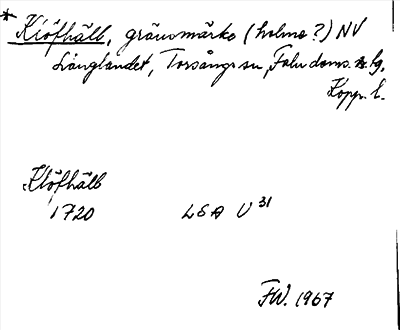 * Klöfhälb, gränsmärke (holme?) NV
Långlandet, Torsångs sn, Falu doms. n. lg.
Kopp. l.
Klöfhälb
1720 LSA U 31
FW. 1967